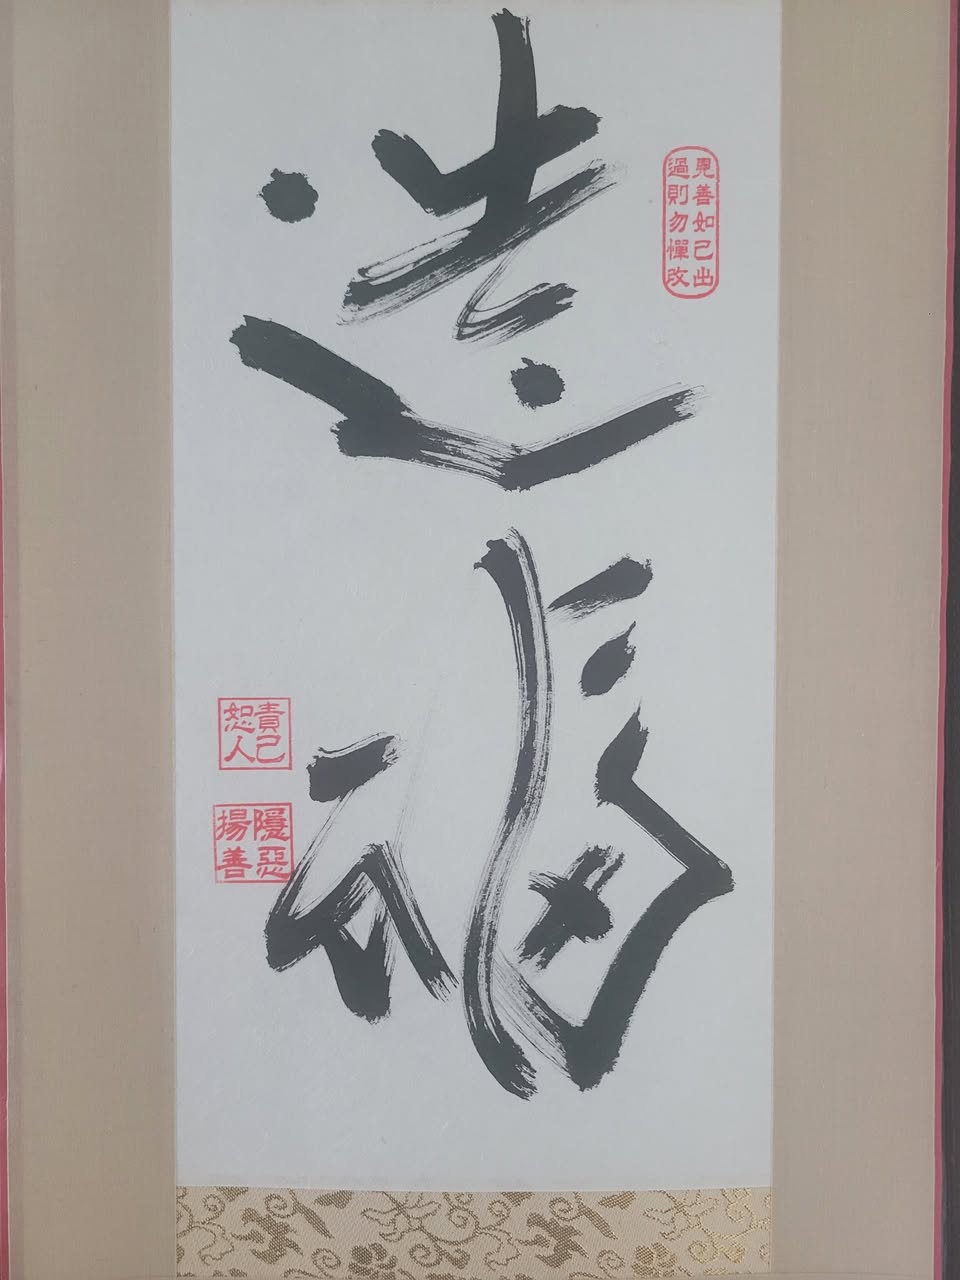 見善如己出
過則勿憚改
造福
責己
恕人
隱惡
揚善